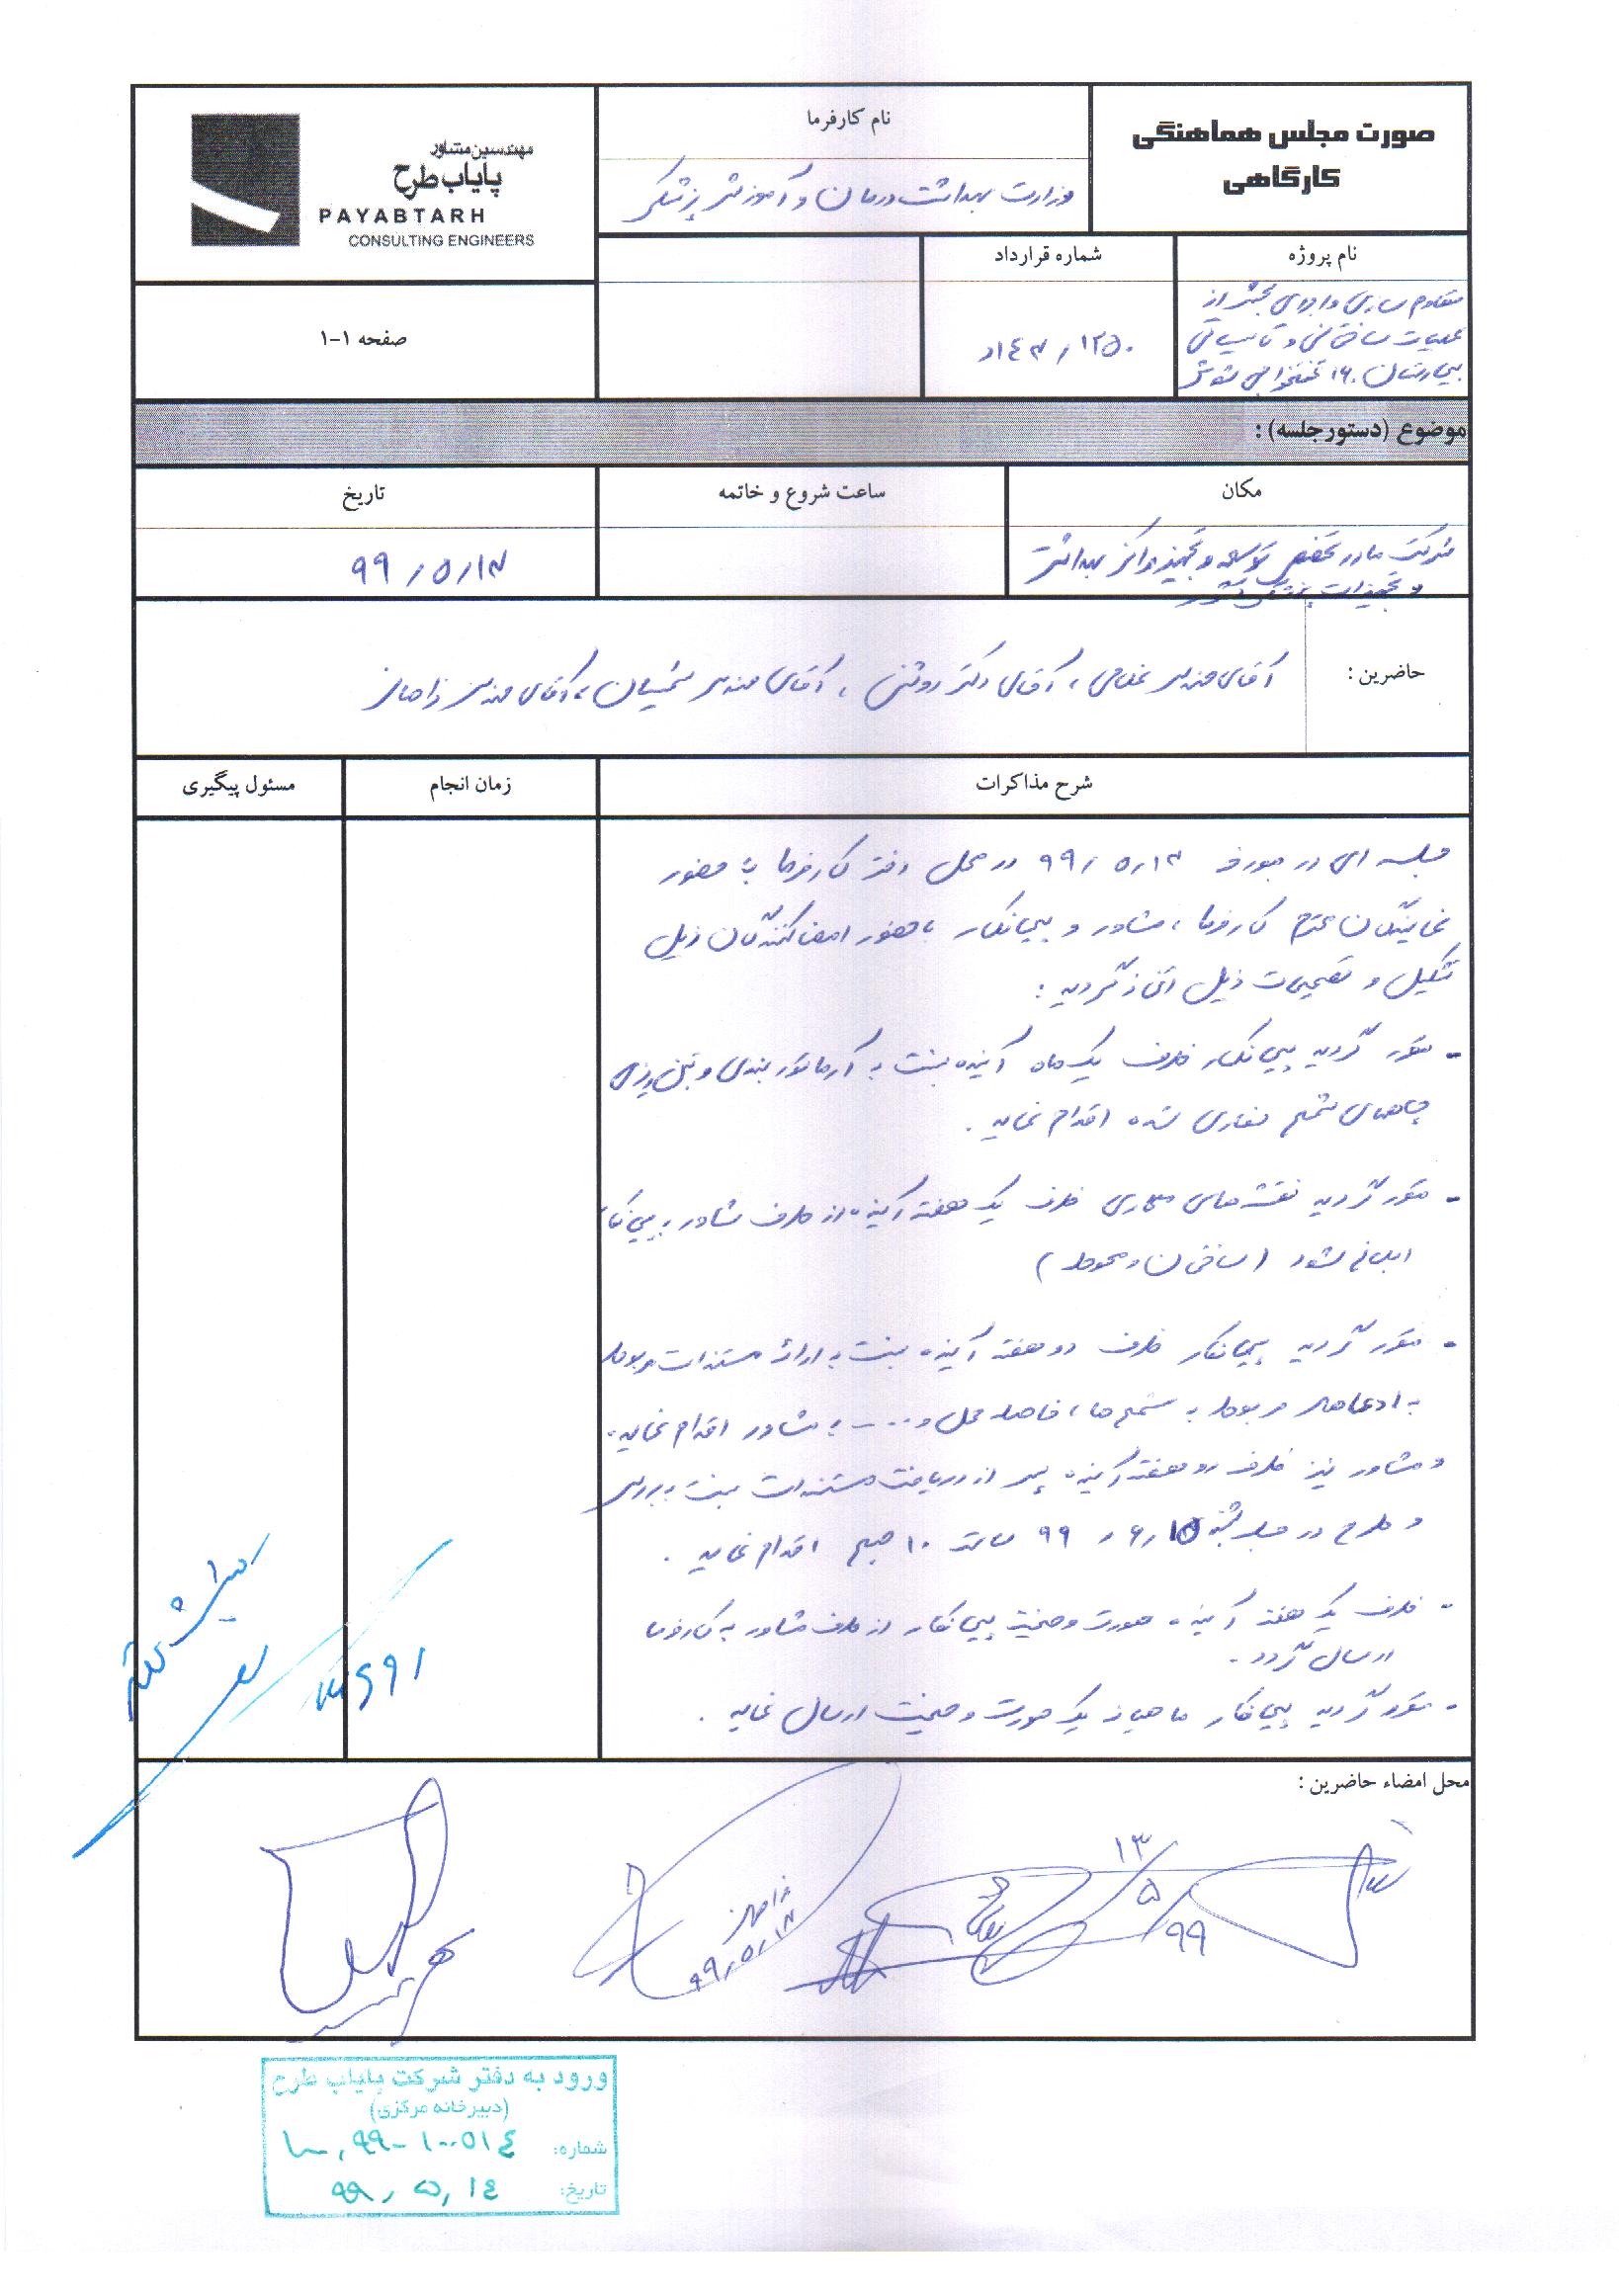 صورت مجلس هماهنگی
کارگاهی
نام کارفرما
وزارت بهداشت درمان و آموزش پزشکی
مهندسین مشاور
پایاب طرح
PAYABTARH
CONSULTING ENGINEERS
نام پروژه
مقاوم سازی و اجرای بخشی از
عملیات ساختمانی و تاسیساتی
بیمارستان ۱۶۰ تختخوابی شوش
شماره قرارداد
۱۴۳/۱۲۵۰/د
صفحه ۱-۱
موضوع (دستورجلسه) :
مکان
شرکت مادر تخصصی توسعه و تجهیز مراکز بهداشتی
و تجهیزات پزشکی کشور
ساعت شروع و خاتمه
تاریخ
۹۹/۵/۱۳
حاضرین :
آقای مهندس غلامی ، آقای دکتر روشنی ، آقای مهندس ، آقای مهندس
شرح مذاکرات
زمان انجام
مسئول پیگیری
جلسه ای در مورخه ۹۹/۵/۱۳ در محل دفتر کارفرما با حضور
نمایندگان محترم کارفرما ، مشاور و پیمانکار با حضور امضا کنندگان ذیل
تشکیل و تصمیمات ذیل اتخاذ گردید :
- مقرر گردید پیمانکار ظرف یک ماه آینده نسبت به آرماتور بندی و بتن ریزی
چاههای شمع حفاری شده اقدام نماید .
- مقرر گردید نقشه های معماری ظرف یک هفته آینده از طرف مشاور به پیمانکار
ابلاغ شود (ساختمان و محوطه)
- مقرر گردید پیمانکار ظرف دو هفته آینده نسبت به ارائه مستندات مربوطه
به ادعاهای مربوط به شمع ها ، فاصله حمل و .... به مشاور اقدام نماید.
و مشاور نیز ظرف دو هفته آینده پس از دریافت مستندات نسبت به بررسی
و طرح در جلسه ۹۹/۶/۱۵ ساعت ۱۰ صبح اقدام نماید .
- ظرف یک هفته آینده صورت وضعیت پیمانکار از طرف مشاور به کارفرما
ارسال گردد .
- مقرر گردید پیمانکار ماهیانه یک صورت وضعیت ارسال نماید .
محل امضاء حاضرین :
۱۳/۵/۹۹
۹۹/۵/۱۳
ورود به دفتر شرکت پایاب طرح
(دبیرخانه مرکزی)
شماره: ۹۹-۱۰۰۵۱۴
تاریخ: ۹۹/۵/۱۴